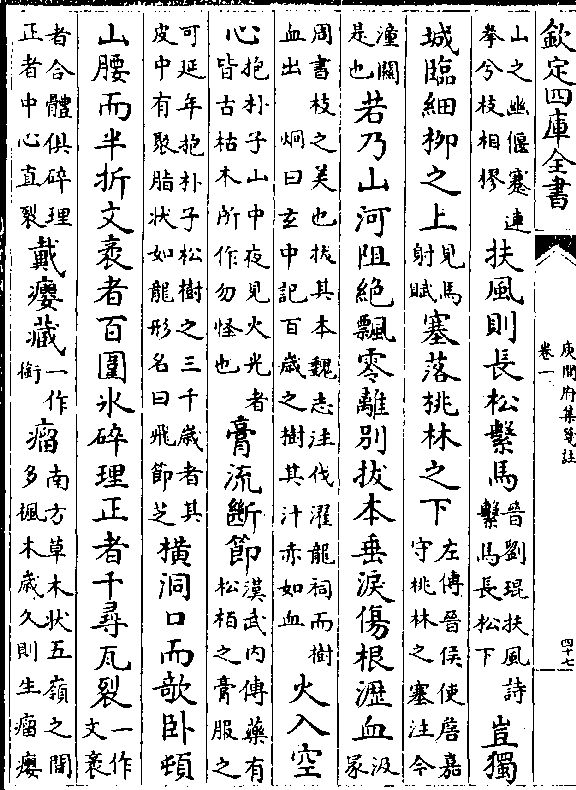 欽定四庫全書
庾開府集箋註
卷一
四十七
山之幽偃蹇連
拳兮枝相樛
扶風則長松繫馬
晉劉琨扶風詩
繫馬長松下
豈獨
城臨細柳之上
見馬
射賦
塞落桃林之下
左傳晉侯使詹嘉
守桃林之塞注今
潼關
是也
若乃山河阻絶飄零離別拔本垂淚傷根瀝血
汲
冡
周書枝之美也拔其本魏志注伐濯龍祠而樹
血出 炯曰玄中記百歲之樹其汁赤如血
火入空
心
抱朴子山中夜見火光者
皆古枯木所作勿怪也
膏流斷節
漢武内傳藥有
松栢之膏服之
可延年抱朴子松樹之三千歲者其
皮中有聚脂状如龍形名曰飛節芝
橫洞口而欹卧頓
山腰而半折文衺者百圍冰碎理正者千尋瓦裂
一作
文衺
者合體俱碎理
正者中心直裂
戴癭藏
一作
銜
瘤
南方草木状五嶺之間
多楓木歲久則生瘤癭